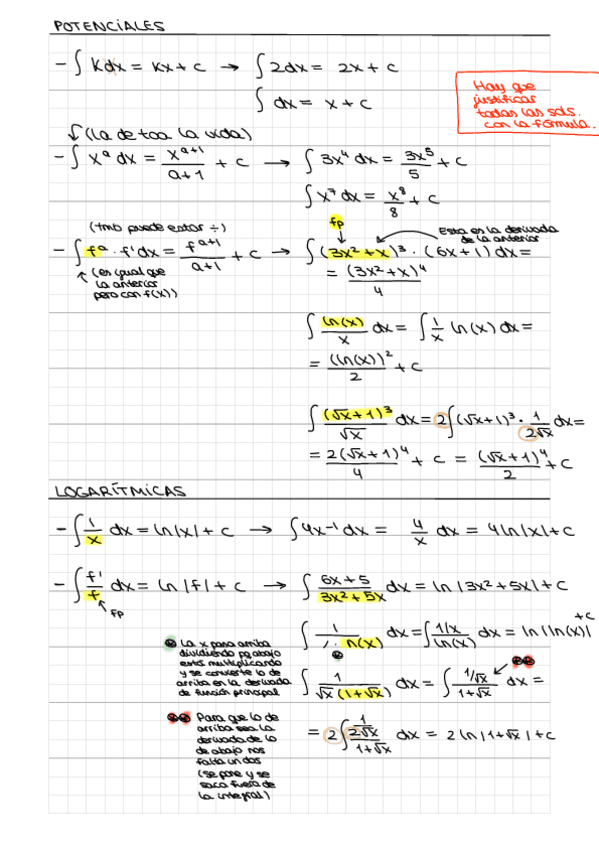 POTENCIALES
- ∫ Kdx = Kx + C → ∫ 2dx = 2x + C
∫ dx = x + C
Hay que
justificar
todas las sols.
con la fórmula.
↓ (la de toa la vida)
- ∫ xᵃ dx = xᵃ⁺¹/a+1 + C → ∫ 3x⁴ dx = 3x⁵/5 + C
∫ x⁷ dx = x⁸/8 + C
(tmb puede estar ÷)
fp
Esta es la derivada
de la anterior
- ∫ fᵃ · f' dx = fᵃ⁺¹/a+1 + C → ∫ (3x² + x)³ · (6x + 1) dx =
(es igual que
la anterior
pero con f(x))
= (3x² + x)⁴/4
∫ ln(x)/x dx = ∫ 1/x ln(x) dx =
= (ln(x))²/2 + C
∫ (√x + 1)³/√x dx = 2∫ (√x + 1)³ · 1/2√x dx =
= 2(√x + 1)⁴/4 + C = (√x + 1)⁴/2 + C
LOGARÍTMICAS
- ∫ 1/x dx = ln|x| + C → ∫ 4x⁻¹ dx = 4/x dx = 4ln|x| + C
- ∫ f'/f dx = ln|f| + C → ∫ 6x + 5/3x² + 5x dx = ln|3x² + 5x| + C
fp
∫ 1/ n(x) dx = ∫ 1/x/ln(x) dx = ln|ln(x)| + C
La x para arriba
dividiendo pq abajo
está multiplicando
y se convierte lo de
arriba en la derivada
de función principal
∫ 1/√x (1 + √x) dx = ∫ 1/√x/1 + √x dx =
Para que lo de
arriba sea la
derivada de lo
de abajo nos
falta un dos
(se pone y se
saca fuera de
la integral)
= 2∫ 1/2√x/1 + √x dx = 2 ln|1 + √x| + C